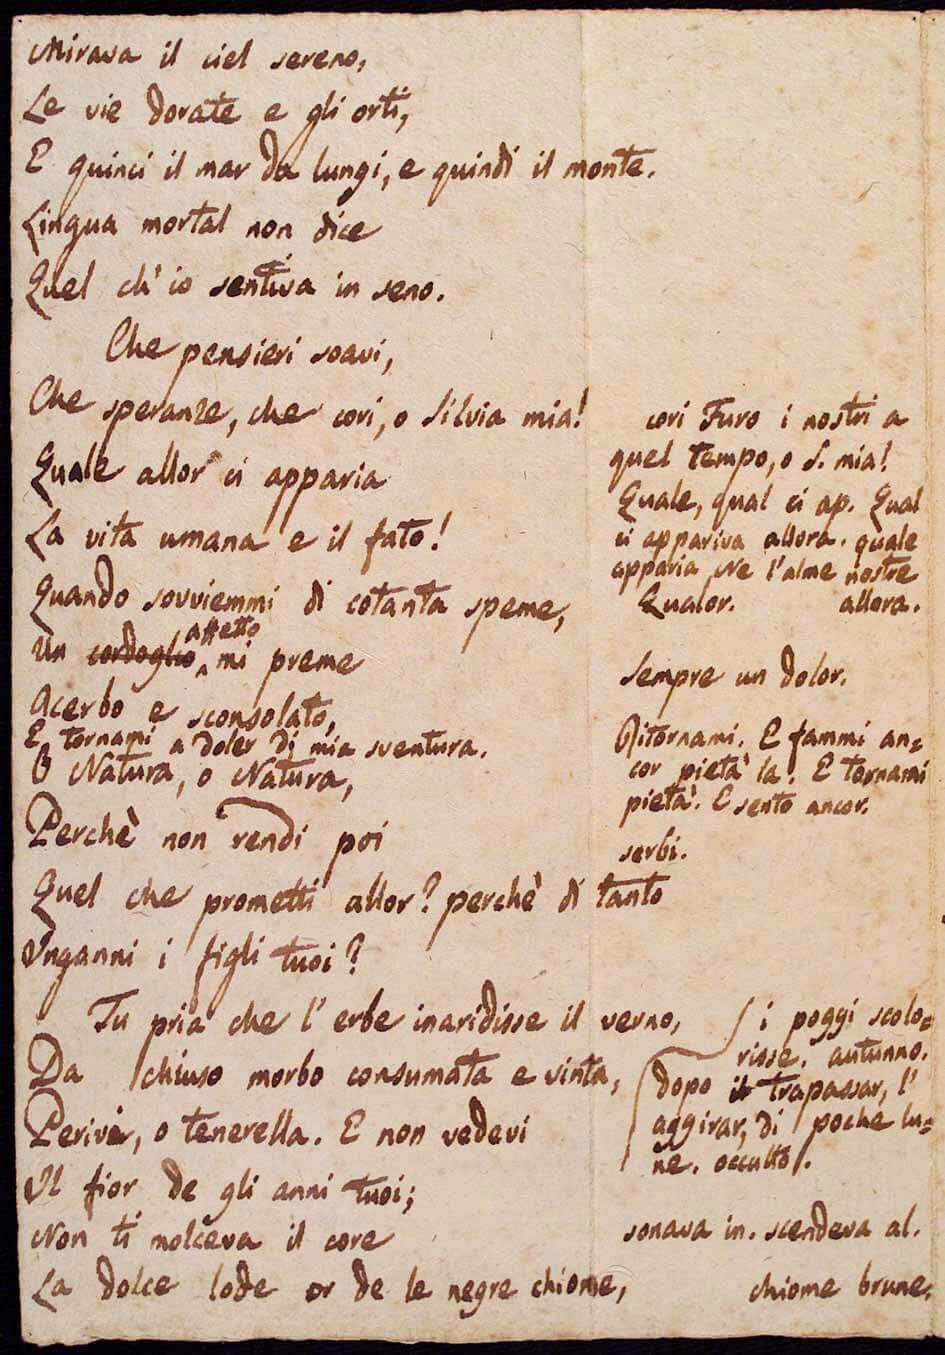 Mirava il ciel sereno,
Le vie dorate e gli orti,
E quinci il mar da lungi, e quindi il monte.
Lingua mortal non dice
Quel ch'io sentiva in seno.
Che pensieri soavi,
Che speranze, che cori, o Silvia mia!
Quale allor ci apparia
La vita umana e il fato!
Quando sovviemmi di cotanta speme,
affetto
Un cordoglio mi preme
Acerbo e sconsolato,
E tornami a doler di mia sventura.
O Natura, o Natura,
Perchè non rendi poi
Quel che prometti allor? perchè di tanto
Inganni i figli tuoi?
Tu pria che l'erbe inaridisse il verno,
Da chiuso morbo consumata e vinta,
Perivi, o tenerella. E non vedevi
Il fior de gli anni tuoi;
Non ti molceva il core
La dolce lode or de le negre chiome,
cori Furo i nostri a
quel tempo, o S. mia!
Quale, qual ci ap. Qual
ci appariva allora. quale
apparia Ne l'alme nostre
Qualor. allora.
Sempre un dolor.
Ritornami. E fammi an=
cor pietà la. E tornami
pietà. E sento ancor.
serbi.
i poggi scolo=
risse. autunno.
dopo il trapassar, l'
aggirar, di poche lu=
ne. occulto.
sonava in. scendeva al.
chiome brune.